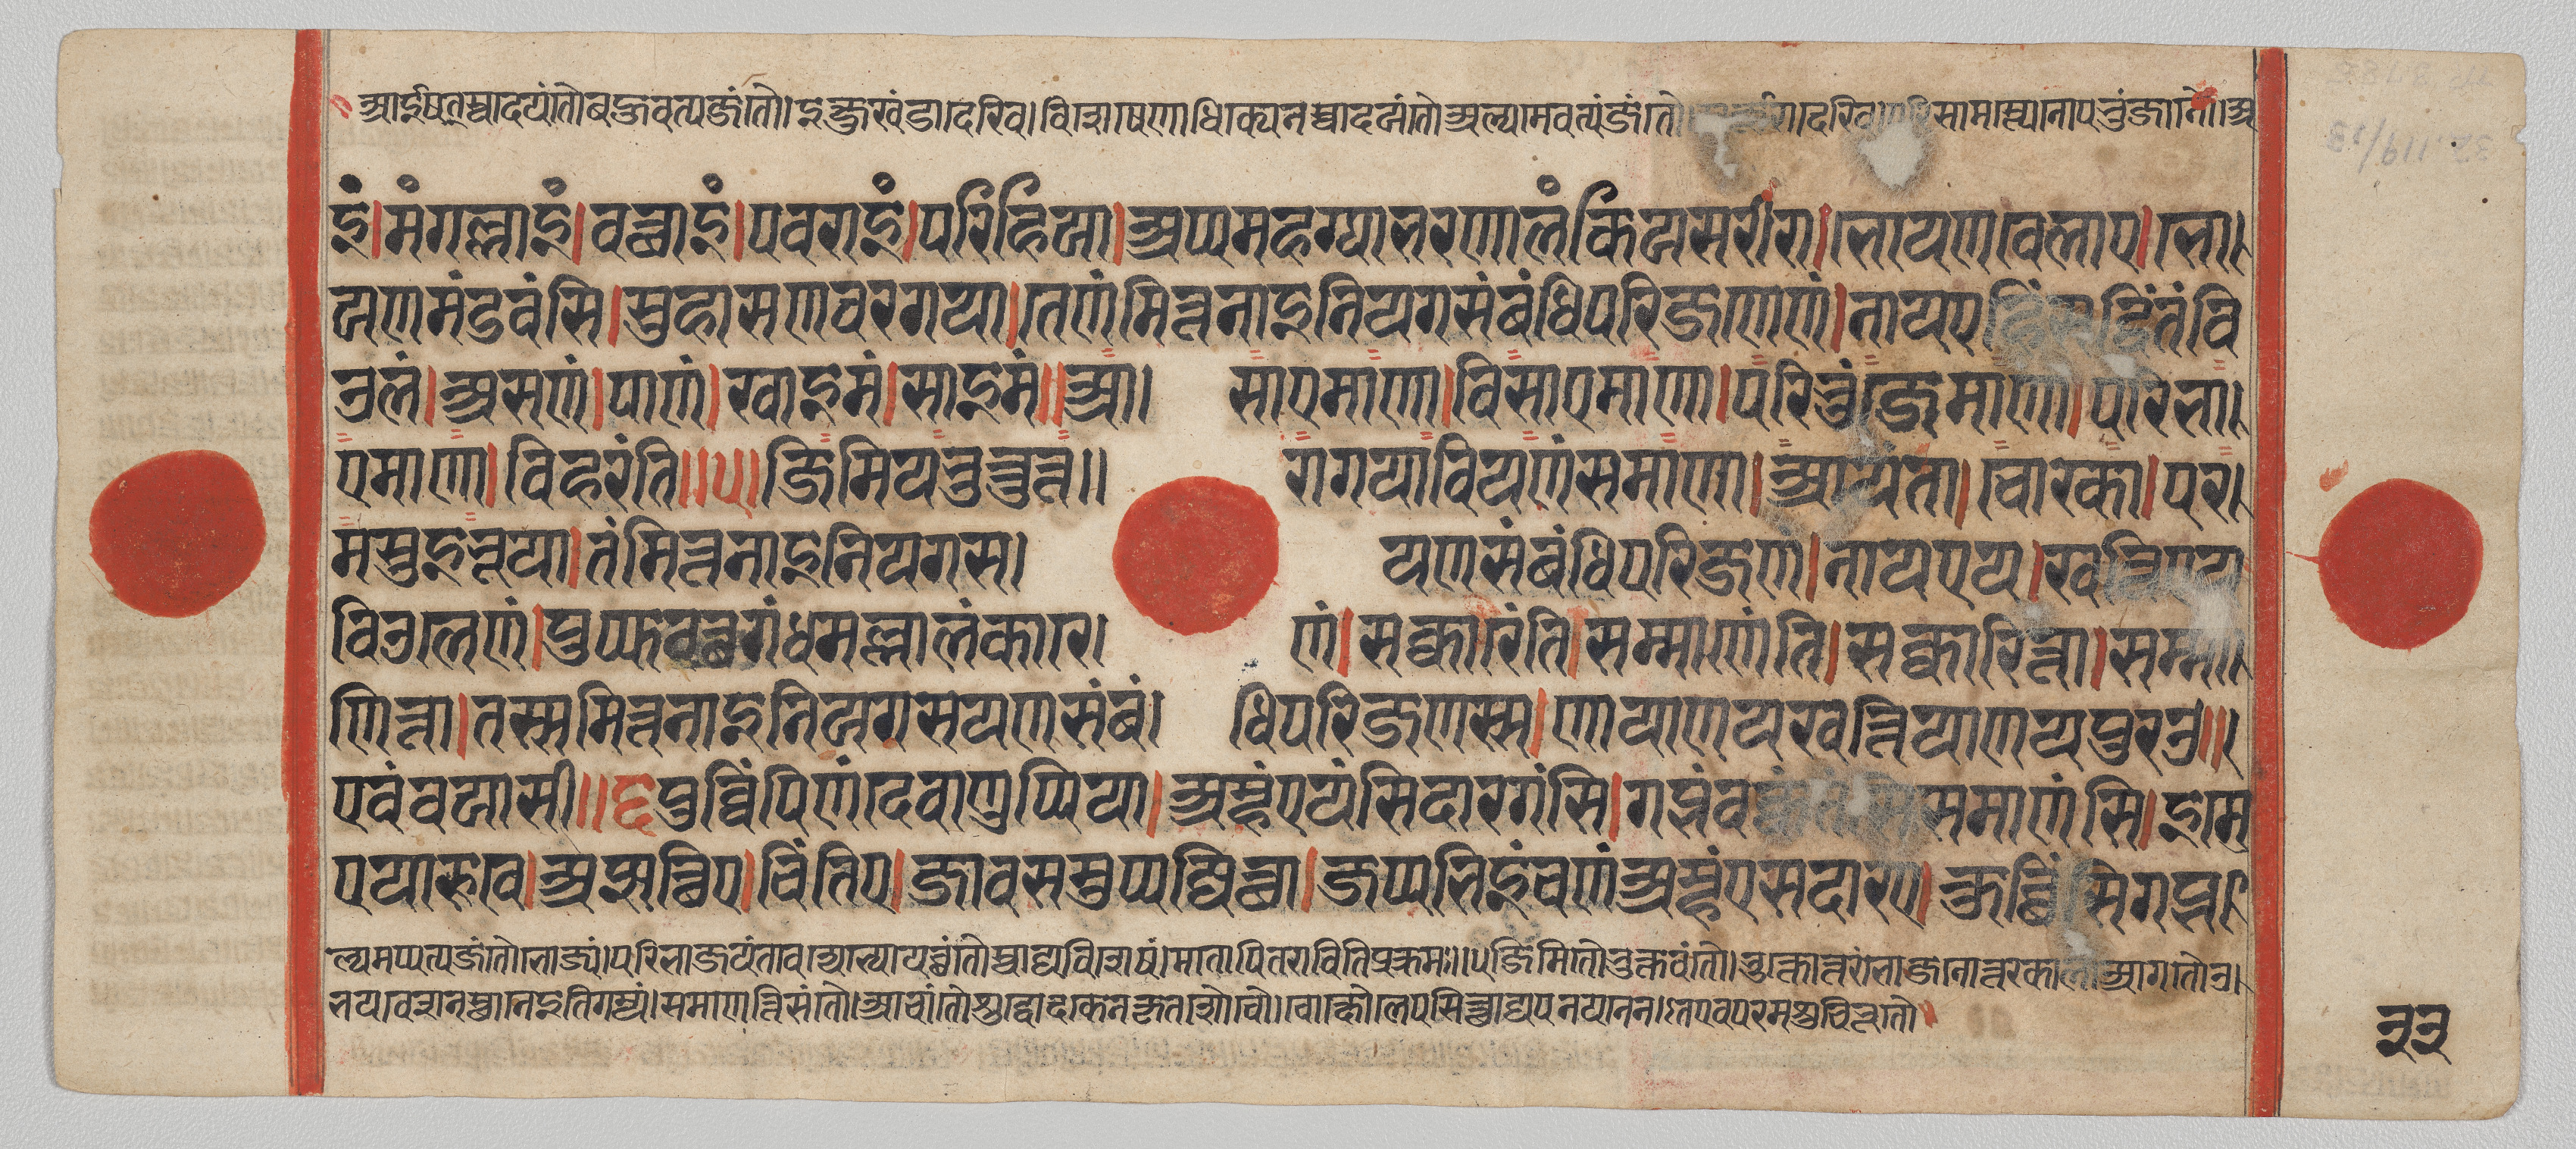 आईषत्स्वादयंतौबहुएवत्यजंतौ।इक्षुखंडादेरिव।विशेषेणाधिक्येनस्वादयंतौअल्पमेवत्यजंतौ देरिव।परिसामस्त्येनोपभुंजानौ।अ
इं।मंगल्लाइं।वत्थाइं।पवराइं।परिहिया।अप्पमहग्घाभरणालंकियसरीरा।भोयणवेलाए।भो
यणमंडवंसि।सुहासणवरगया।तेणंमित्तनाइनियगसंबंधिपरिजणेणं।नायएहिंसद्धिंतंवि
उलं।असणं।पाणं।खाइमं।साइमं॥आसाएमाणा।विसाएमाणा।परिभुंजेमाणा।परिभा
एमाणा।विहरंति॥५॥जिमियभुत्तुत्तरागयावियणंसमाणा।आयंता।चोक्खा।पर
मसुइभूया।तंमित्तनाइनियगसयणसंबंधिपरिजणं।नायएय।खत्तिएय
विउलेणं।पुप्फवत्थगंधमल्लालंकारेणं।सक्कारेंति।सम्माणेंति।सक्कारित्ता।सम्मा
णित्ता।तस्समित्तनाइनियगसयणसंबंधिपरिजणस्स।णायाणयखत्तियाणयपुरउ॥
एवंवयासी॥६पुव्विंपिणंदेवाणुप्पिया।अम्हंएयंसिदारगंसि।गब्भंवक्कंतंसिसमाणंसि।इमे
एयारूवे।अब्भत्थिए।चिंतिए।जावसमुप्पज्जित्था।जप्पभिइंचणंअम्हंएसदारए।कुच्छिंसिगब्भ
ल्पमप्यत्यजंतौभोज्यं।परिभाजयंतौवाअन्येभ्योयच्छंतौस्वाद्यविशेषं।मातापितरावितिप्रक्रमः॥५जिमितौभुक्तवंतौ।भुक्तोत्तरंभोजनोत्तरकालंआगतौउ
पवेशनस्थानेइतिगम्यं।समाणत्तिसंतौ।आचांतौशुद्धोदकेनकृतशौचौ।चोक्षौलेपसिक्थाद्यपनयनेन।अतएवपरमशुचीभूतौ
३३